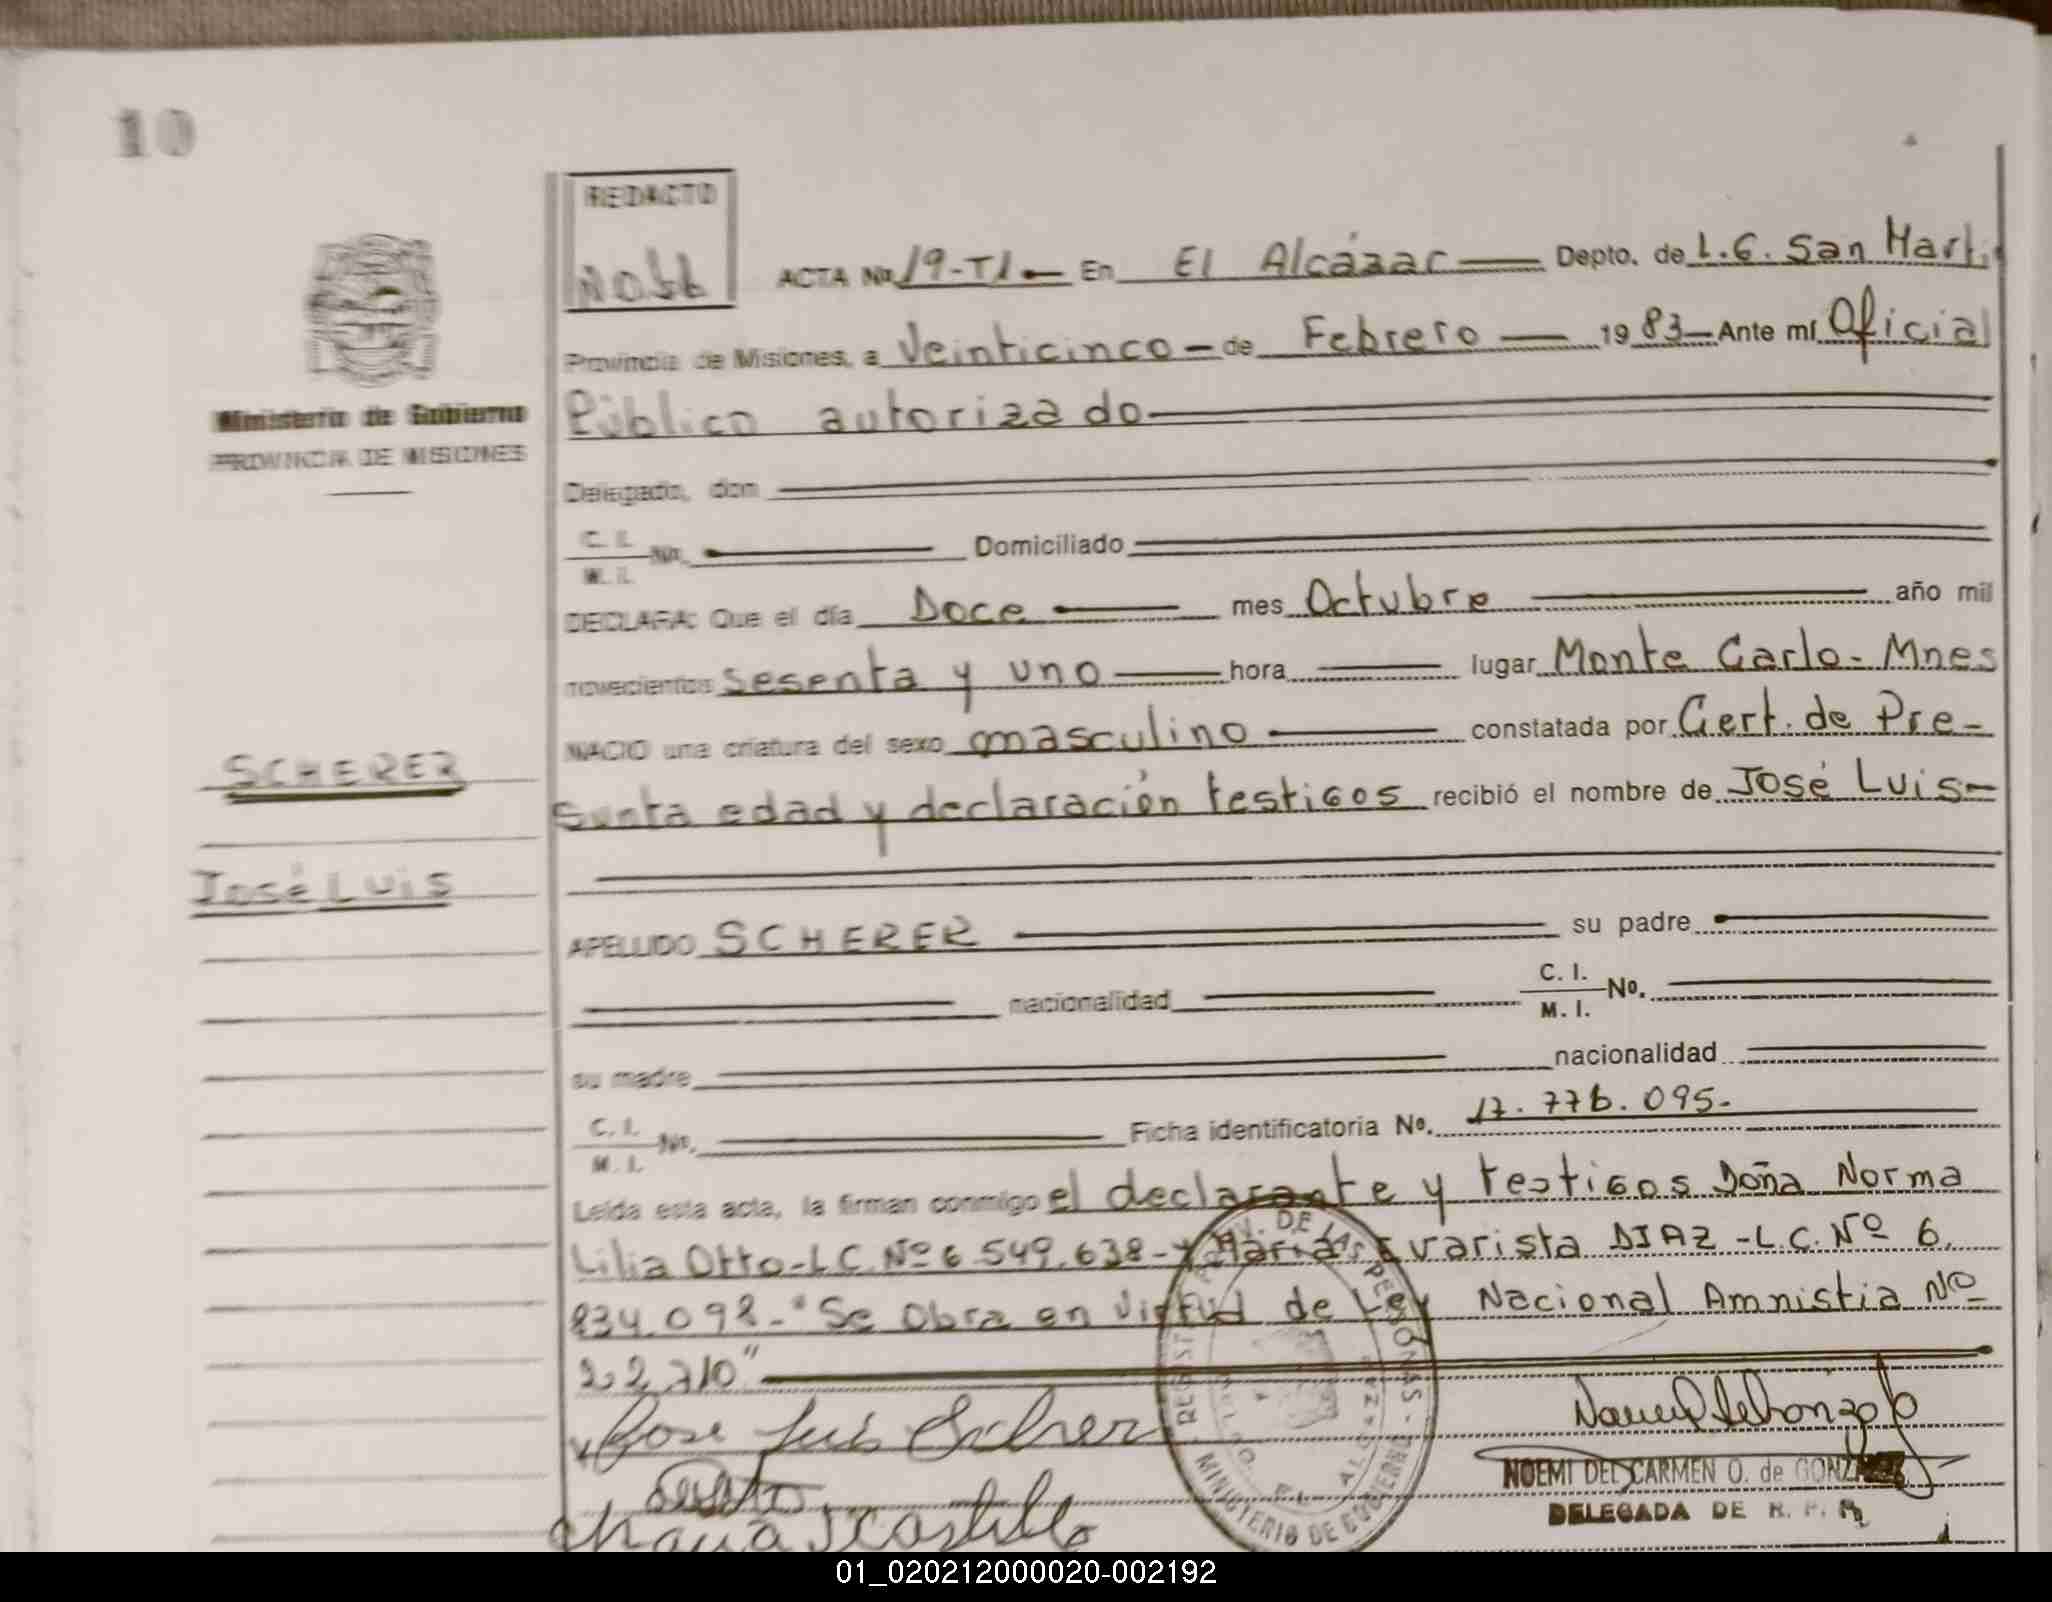 10
REDACTO
ACTA Nº 19-T1 En El Alcázar Depto. de L.G. San Martí
Provincia de Misiones, a Veinticinco - de Febrero 1983 - Ante mí Oficial
Público autorizado
Ministerio de Gobierno
PROVINCIA DE MISIONES
Delegado, don
C. I.
M. I. Nº. Domiciliado
DECLARA: Que el día Doce mes Octubre año mil
novecientos sesenta y uno hora lugar Monte Carlo - Mnes
NACIO una criatura del sexo masculino constatada por Cert. de Pre-
sunta edad y declaración testigos recibió el nombre de José Luis -
SCHERER
José Luis
APELLIDO SCHERER su padre
nacionalidad C. I.
M. I. Nº.
su madre nacionalidad
C. I.
M. I. Nº. Ficha identificatoria Nº. 17.776.095.
Leida esta acta, la firman conmigo el declarante y testigos Doña Norma
Lilia Otto - L.C. Nº 6.549.638 - y María Evarista DIAZ - L.C. Nº 6.
834.098. - "Se Obra en Virtud de Ley Nacional Amnistia Nº
22.710"
Jose Luis Scherer
NOEMI DEL CARMEN O. de
DELEGADA DE R. P.
DE LAS PERSONAS - MINISTERIO DE GOBIERNO
01_020212000020-002192